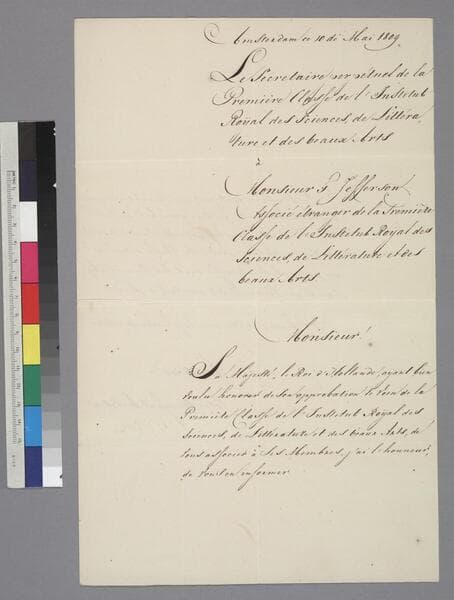 Amsterdam ce 10 de Mai 1809.
Le Secretaire perpétuel de la
Première Classe de l'Institut
Royal des Sciences, de Littéra-
ture et des beaux Arts
à
Monsieur Jefferson
Associé étranger de la Première
Classe de l'Institut Royal des
Sciences, de Littérature et des
beaux Arts.
Monsieur!
Sa Majesté, le Roi d'Hollande, ayant bien
voulu honorer de son approbation le voeu de la
Première Classe de l'Institut Royal des
Sciences, de Littérature et des beaux Arts, de
vous associer à Ses Membres, j'ai l'honneur,
de vous en informer